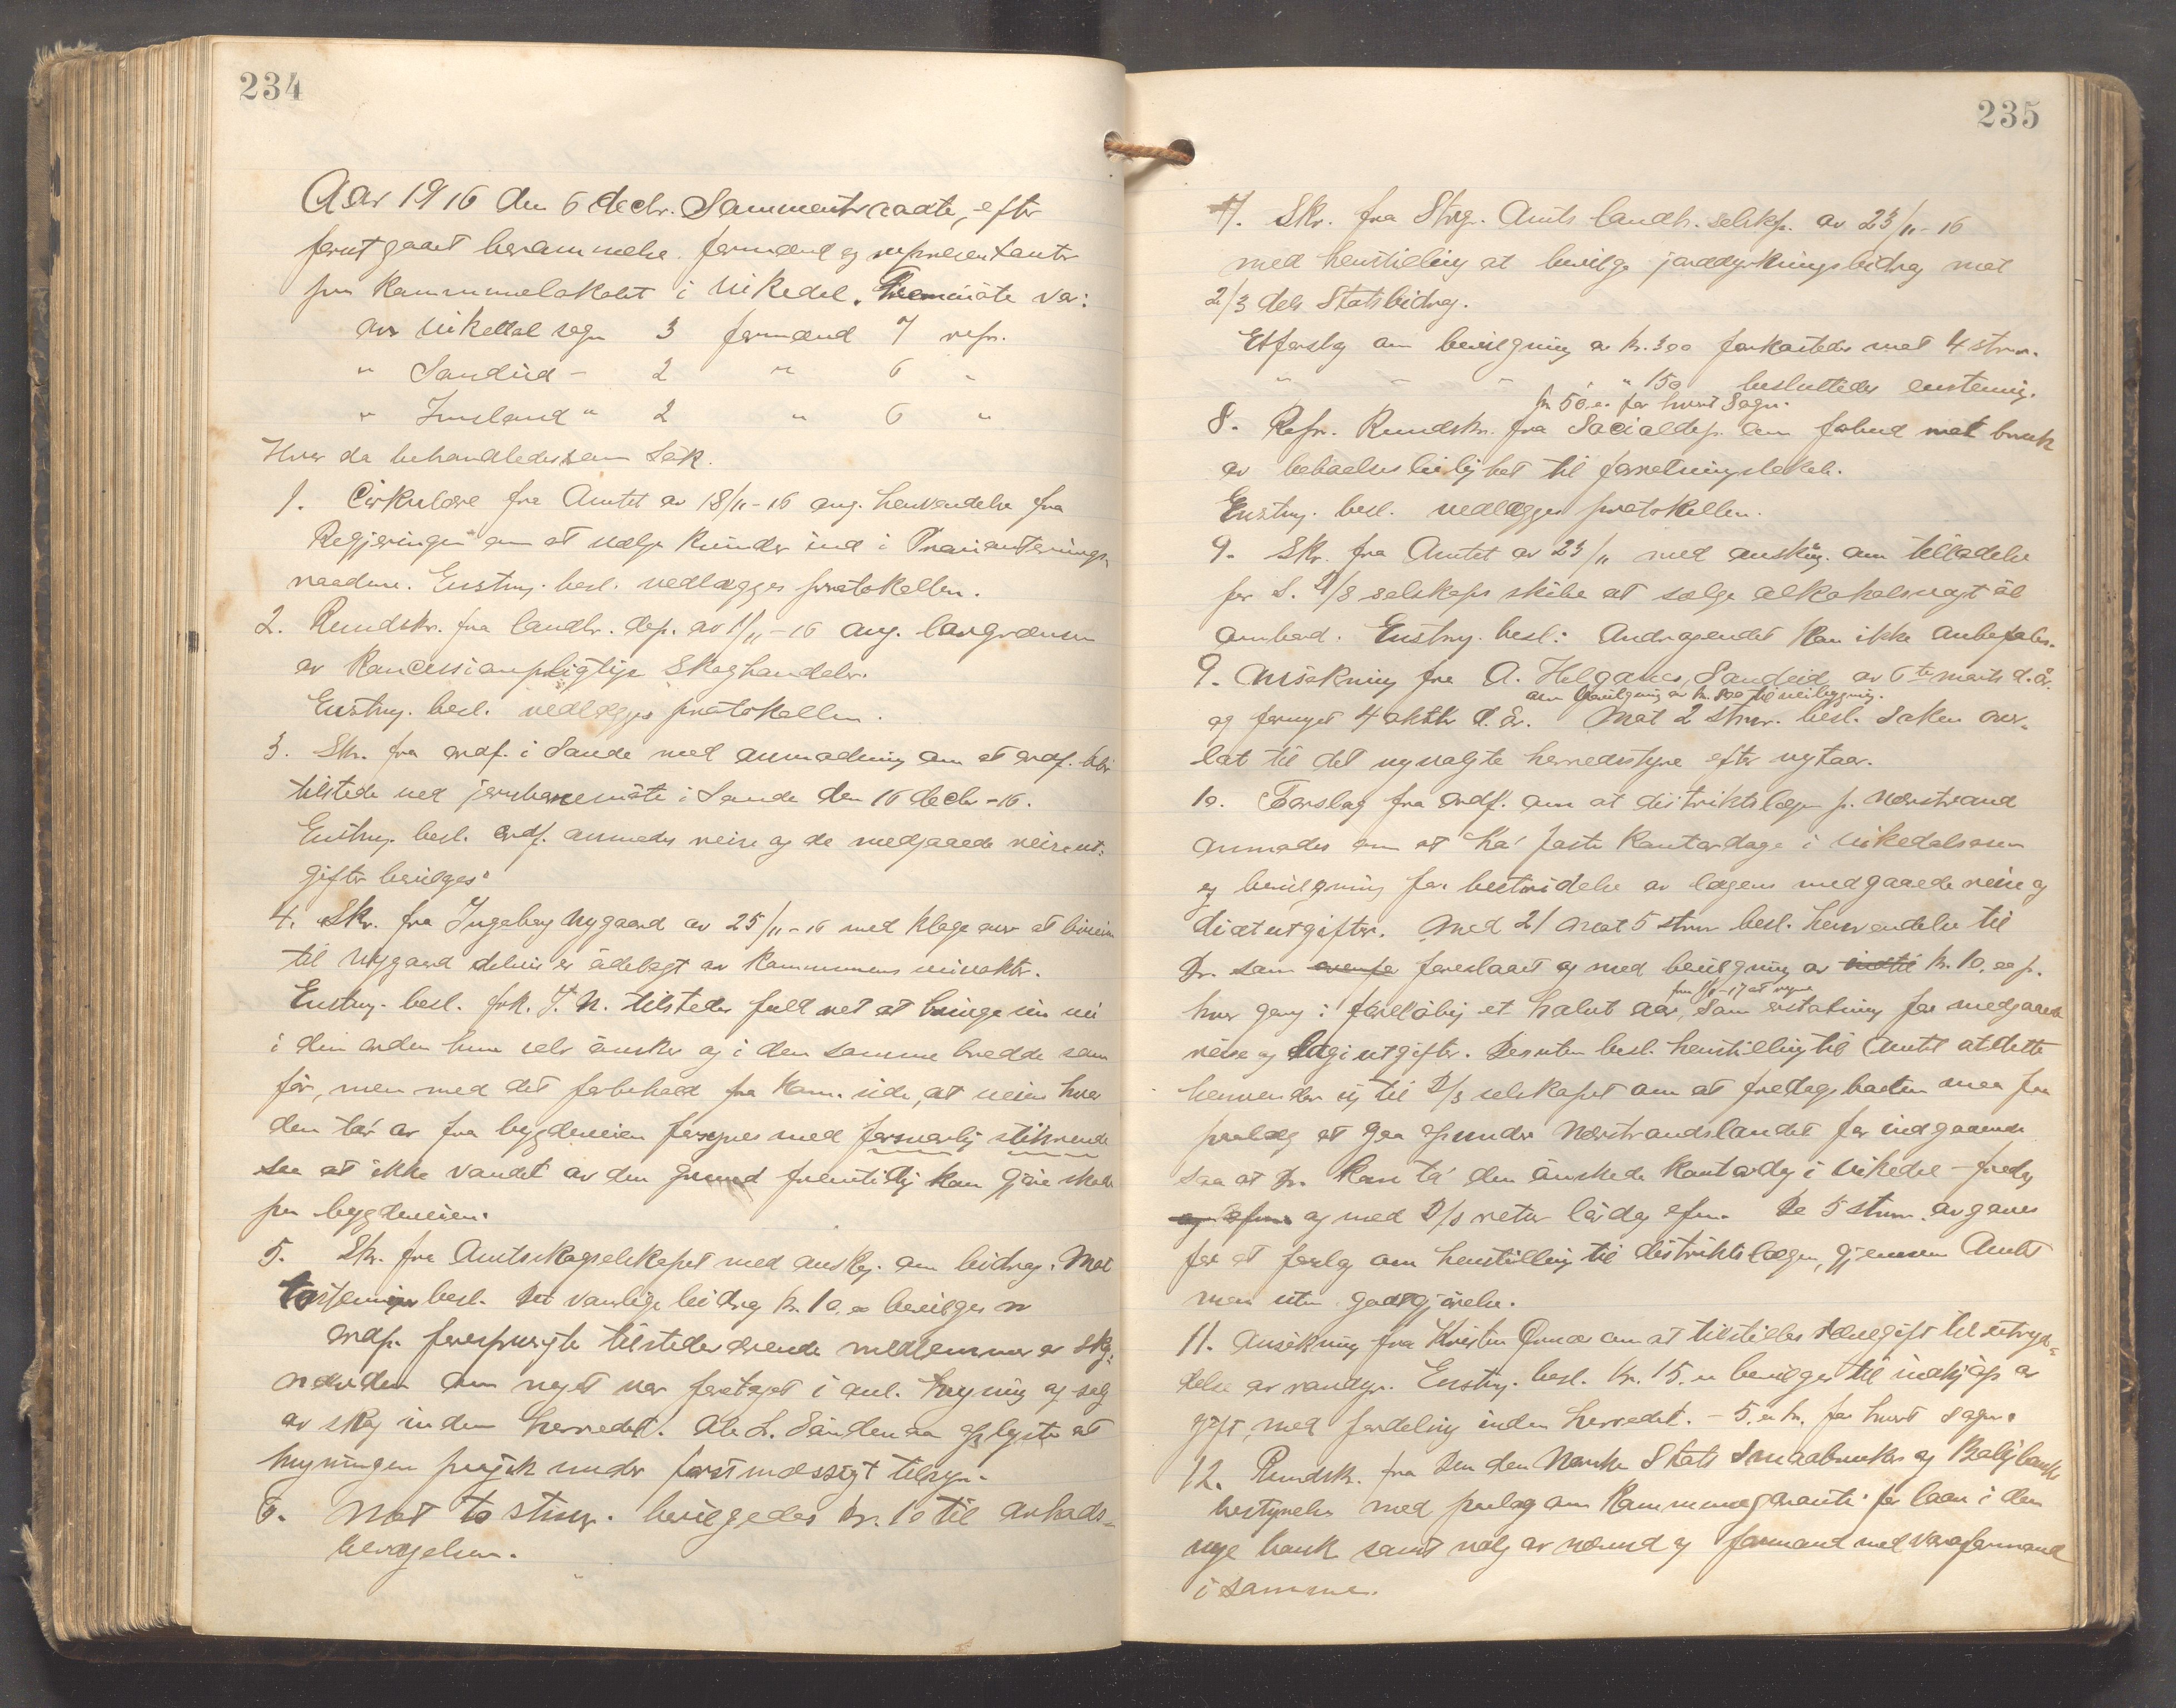 234
Aar 1916 den 6 decbr. Sammentraadte, efter
forutgaaet berammelse formænd og representanter
paa kommunelokalet i Vikedal. Fremmøte var:
av Vikedal sogn 3 formænd 7 repr.
" Sandeid - 2 " 6 "
" Imsland " 2 " 6 "
Hvor da behandledes som Sak.
1. Cirkulære fra Amtet av 18/11-16 ang. henvendelse fra
Regjeringen om at vælge kvinder ind i Provianterings-
raadene. Enstmg. besl. vedlægges protokollen.
2. Rundskr. fra landbr. dep. av 1/11-16 ang. lavgrænsen
av Koncessionspligtige Skoghandeler.
Enstmg. besl. vedlægges protokollen.
3. Skr. fra ordf. i Sande med anmodning om at ordf. blir
tilstede ved jernbanemøte i Sande den 16 decbr-16.
Enstmg. besl. ordf. anmodes reise og de medgaaede reiseut-
gifter bevilges.
4. Skr. fra Ingeborg Nygaard av 25/11-16 med klage over at biveien
til Nygaard delvis er ødelagt av kommunens veivokter.
Enstmg. besl. frk. I. N. tilstedes fuld ret at bringe sin vei
i den orden hun selv ønsker og i den samme bredde som
før, men med det forbehold fra kom. side, at veien hvor
den tar av fra bygdeveien forsynes med forsvarlig stikrende
saa at ikke vandet av den grund fremtidig kan gjøre skade
paa bygdeveien.
5. Skr. fra Amtsskogselskapet med ansøkg. om bidrag. Mot
to stemmer besl. Det vanlige bidrag kr. 10,00 bevilges
ordf. forespurgte tilstedeværende medlemmer av skog-
nævnden om noget var foretaget i anl. hugning og salg
av skog inden herredet. Ole L. Søndenaa oplyste at
hugningen pagik under forstmæssigt tilsyn.
6. Mot to stmr. bevilgedes kr. 10 til avholds-
bevægelsen.
235
7. Skr. fra Stvgr. Amts landh. selskp. av 23/11-16
med henstilling at bevilge jorddyrkningsbidrag mot
2/3 dels Statsbidrag.
Et forslag om bevilgning av kr. 300 forkastedes mot 4 stmr.
" - - " " 150 besluttedes enstemig.
kr 50,00 for hvert Sogn.
8. Refr. Rundskr. fra Socialdep. om forbud mot bruk
av beboelsesleilighet til forretningslokale.
Enstmg. besl. vedlægges protokollen.
9. Skr. fra Amtet av 23/11 med ansøkng. om tilladelse
for S. D/S selskaps skibe at sælge alkoholsvagt øl
ombord. Enstmg. besl: Andragendet kan ikke anbefales.
9. Ansøkning fra A. Helganes, Sandeid, av 6te marts d. å.
om bevilgning av kr. 800 til veibygning.
og fornyet 4 oktbr d. år. Mot 2 stmr. besl. Saken over-
lat til det nyvalgte herredsstyre efter nytaar.
10. Forslag fra ordf. om at distriktslægen p. Nærstrand
anmodes om at ha' faste kontordage i Vikedalsosen
og bevilgning for bestridelse av lægens medgaaede reise og
diætutgifter. Med 21 mot 5 stmr besl. henvendelse til
Dr. som ovenfor foreslaaet og med bevilgning av indtil kr. 10,00 p.
fra 1/1-17 at regne
hver gang i foreløbig et halvt aar, Som erstatning for medgaaede
reise og logiutgifter. Desuten besl. henstilling til Amtet at dette
henvender sig til D/S selskapet om at fredagsbaaten maa faa
paalæg at gaa op under Nærstrandslandet for indgaaende
saa at Dr. kan ta' den ønskede kontordag i Vikedal - fredag
og med D/S retur lørdag efm. De 5 stmr. avgaves
for et forslag om henstilling til distriktslægen, gjennem Amtet
men uten godtgjørelse.
11. Ansøkning fra Kristen om at tilstilles rævegift til utryd-
delse av rovdyr. Enstmg. besl. Kr. 15,00 bevilges til indkjøp av
gift, med fordeling inden herredet. - 5,00 kr. for hvert sogn.
12. Rundsk. fra Den den Norske Stats Smaabruks og Boligbanks
bestyrelse med paalæg om kommunegaranti for laan i den
nye bank samt valg av nævnd og formand med varaformand
i samme.